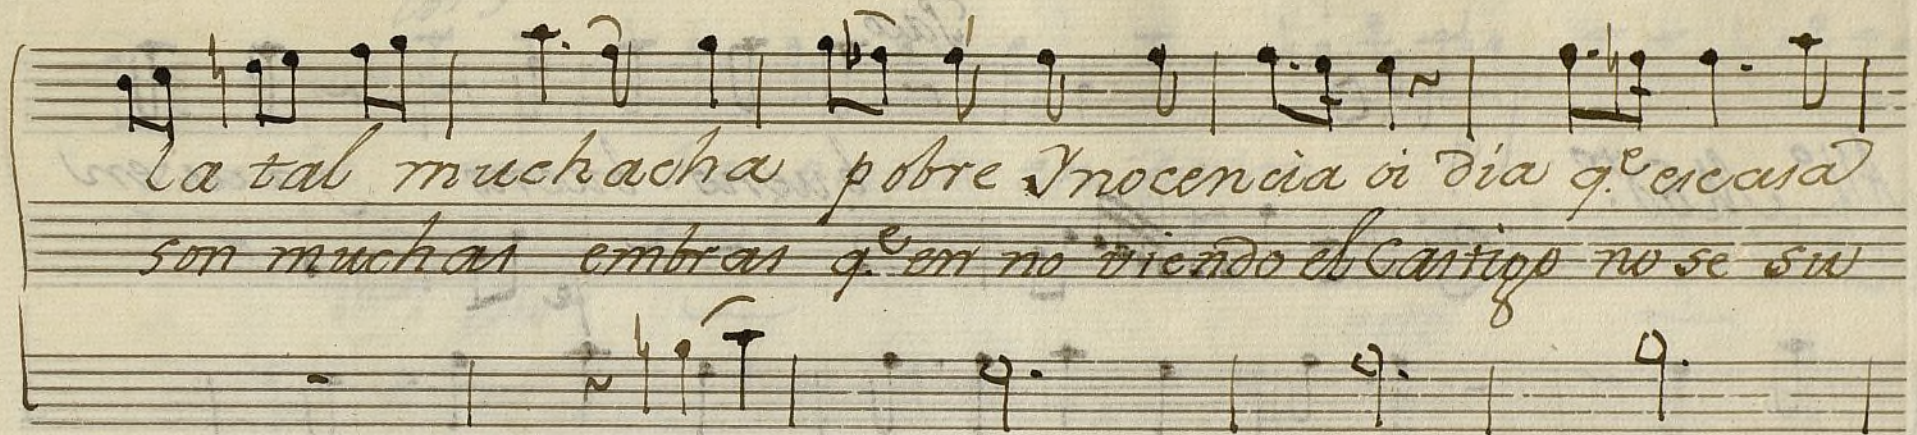 la tal muchacha pobre Ynocencia oi dia q.e escasa
son muchas embras q.e en no viendo el Castigo no se su